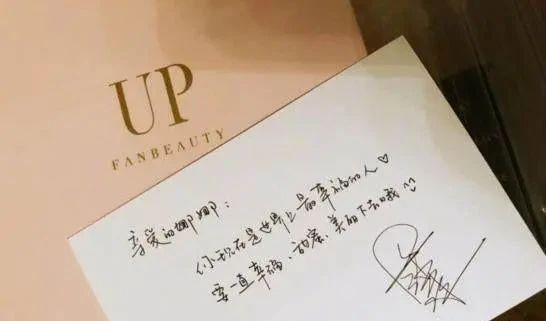 UP
FANBEAUTY
亲爱的娜娜：
你现在是世界上最幸福的人♡
要一直幸福、甜蜜、美的下去哦^^